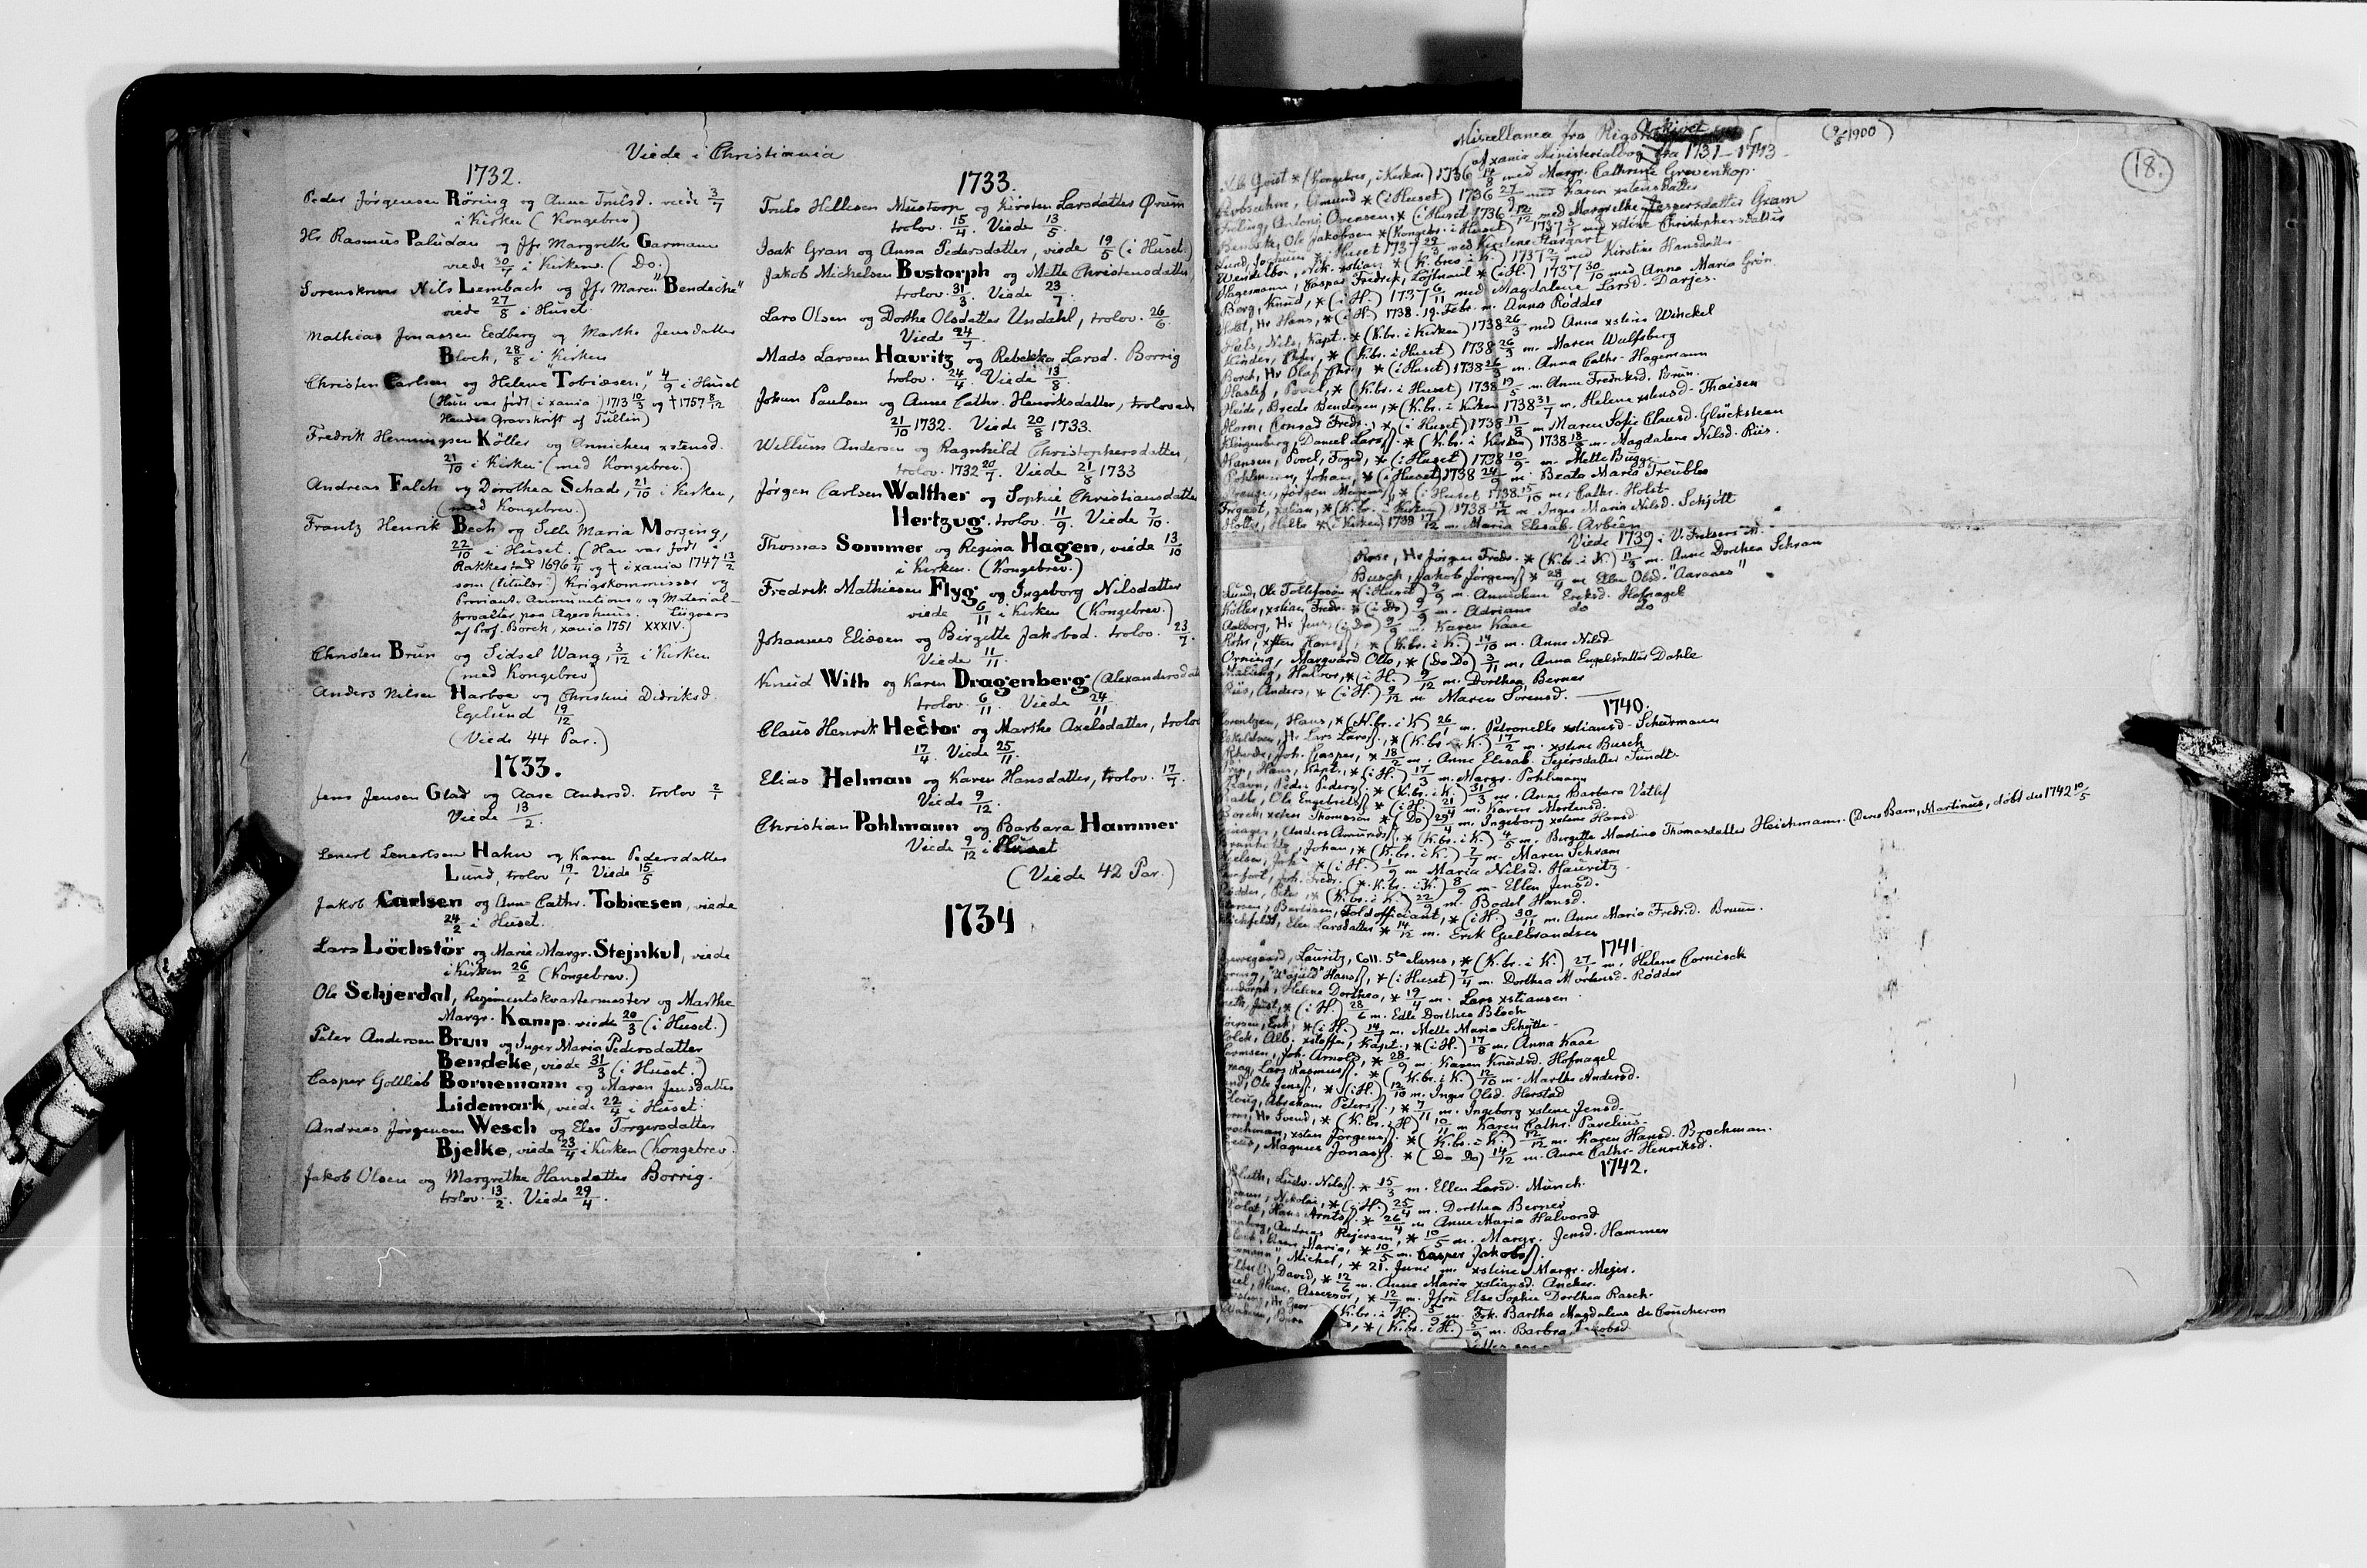 Viede i Christiania
1732.
Peder Jørgensen Röring og Anne Trulsd. viede 3/7
i Kirken (Kongebrev)
Hr Rasmus Paludan og Jfr Margrethe Garmann
viede 30/7 i Kirken. (Do.)
Sorenskriver Nils Lembach og Jfr Maren "Bendeche"
viede 27/8 i Huset.
Mathias Jonassen Eedberg og Marthe Jensdatter
Bloch, 28/8 i Kirken
Christen Carlsen og Helene "Tobiæsen", 4/9 i Huset
(Hun var født (i xania) 1713 10/3 og † 1757 8/12
Hendes Gravskrift af Tullin)
Fredrik Henningsen Köller og Annichen xstensd.
21/10 i Kirken (med Kongebrev.)
Andreas Falch og Dorothea Schade, 21/10 i Kirken,
(med Kongebrev.)
Frantz Henrik Bech og Sille Maria Morging,
22/10 i Huset. (Han var født i
Rakkestad 1696 og † i xania 1747 13/2
som (titulær) Krigskommissær og
Proviant- Ammunitions- og Material-
forvalter paa Agershuus.
af Prof. Borch, xania 1751 XXXIV.)
Christen Brun og Sidsel Wang, 3/12 i Kirken
(med Kongebrev)
Anders Nilsen Harboe og Christine Didriksd.
Egelund 19/12
(Viede 44 Par.)
1733.
Jens Jensen Glad og Aase Andersd. trolov 2/1
Viede 13/2.
Lenert Lenertsen Hahn og Karen Pedersdatter
Lund, trolov 19/1. Viede 15/5
Jakob Carlsen og Anne Cathr. Tobiæsen, viede
24/2 i Huset.
Lars Löchstör og Marie Margr. Stejnkul, viede
i Kirken 26/2 (Kongebrev.)
Ole Schjerdal, Regimentskvartermester og Marthe
Margr. Kamp. viede 20/3 (i Huset.)
Peter Andersen Brun og Inger Maria Pedersdatter
Bendeke, viede 31/3 (i Huset.)
Casper Gottlieb Bornemann og Maren Jensdatter
Lidemark, viede 22/4 i Huset.
Andreas Jørgensen Wesch og Else Torgersdatter
Bjelke, viede 23/4 i Kirken (Kongebrev.
Jakob Olsen og Margrethe Hansdatter Borrig.
trolov. 13/2. Viede 29/4.
1733.
Truls Hellesen Mustorp og Kirsten Larsdatter Ørum
trolov. 15/4. Viede 13/5.
Isak Gran og Anna Pedersdatter, viede 19/5 (i Huset)
Jakob Mickelsen Bustorph og Mette Christensdatter,
trolov. 31/3. Viede 23/7.
Lars Olsen og Dorthe Olsdatter Usdahl, trolov. 26/6.
Viede 24/7.
Mads Larsen Havritz og Rebekka Larsd. Borrig
trolov. 24/4. Viede 13/8.
Johan Paulsen og Anne Cathr. Henriksdatter, trolovede
21/10 1732. Viede 20/8 1733.
Willum Andersen og Ragnhild Christophersdatter,
trolov. 1732 20/7. Viede 21/8 1733
Jørgen Carlsen Walther og Sophie Christiansdatter
Hertzug. trolov. 11/9. Viede 7/10.
Thomas Sommer og Regina Hagen, viede 13/10
i Kirken. (Kongebrev.)
Fredrik Mathiesen Flyg og Ingeborg Nilsdatter
viede 6/11 i Kirken (Kongebrev.)
Johannes Eliæsen og Birgette Jakobsd. trolov. 23/7.
Viede 11/11.
Knud With og Karen Dragenberg (Alexandersdat
trolov. 6/11. Viede 24/11
Claus Henrik Hector og Marthe Axelsdatter, trolov
17/4. Viede 25/11.
Elias Helman og Karen Hansdatter, trolov. 17/7.
Viede 9/12.
Christian Pohlmann og Barbara Hammer
Viede 9/12 i Huset
(Viede 42 Par.)
1734
Miscellanea fra Rigs Arkivet (9/5 1900)
(af xania Ministerialbog fra 1731-1743
18.
Qvist * (Kongebrev, i Kirken) 1736 14/8 med Margr. Cathrine Grevenkop.
Amund * (i Huset) 1736 27/9 med Karen xstensdatter
Antoni Ovensen * (i Huset 1736 12/12 med Margrethe Jespersdatter Gram
Bendeke, Ole Jakobsen * (Kongebr. i Huset) 1737 3/1 med xstine Christophersdatter
Lund, Jochum * i Huset 1737 29/3 med Kirstene Hargart
Wendelboe, Nik. xstian * (K.brev i K.) 1737 med Kirstine Hansdatter
Hagemann, Caspar Fredrik, Løjtnant * (i H.) 1737 30/10 med Anna Maria Grøn
Borg, Knud, * (i H.) 1737 6/11 med Magdalene Larsd. Darjes.
Holst, Hr Hans, * (i H.) 1738. 19. Febr. m. Anna Rødder
Huls, Nils, Kapt. * (K.br. i Kirken) 1738 26/3 med Anna xstine Winckel
Peter, * (K.br. i Huset) 1738 26/3 m. Maren Wulfsberg
Borch, Hr Olaf Chr., * (i Huset) 1738 26/3 m. Anna Cathr. Hagemann
Haslef, Povel, * (K.br. i Huset) 1738 19/5 m. Anne Fredriksd. Brun.
Heide, Brede Bendixen, * (K.br. i Kirken 1738 31/7 m. Helene xstensd. Thaisen
Horn, Conrad Fredr., * (i Huset) 1738 11/8 m Maren Sofie Clausd. Glückstean
Klingenberg, Daniel Larss. * (K.br. i Kirken) 1738 18/8 m. Magdalene Nilsd. Riis.
Hansen, Povel, Foged, * (i Huset) 1738 10/9 m. Mette Bugge
Pohlmann, Johan, * (i Huset) 1738 24/9 m. Beata Maria Treubler
Jørgen * i Huset 1738 15/10 m. Cathr. Holst.
xstian, * (K.br. i Kirken) 1738 17/12 m Inger Maria Nilsd. Schjøtt
Holter, Helle * (i Kirken) 1738 17/12 m. Maria Elisab. Arbien
Viede 1739 i V. Frelsers K.
Rose, Hr Jørgen Fredr. * (K.br. i K.) 11/3 m. Anne Dorthea Schram
Busch, Jakob Jørgenss. * 28/4 m Else Olsd. "Aaraaes"
Lund, Ole Tollefssøn * (i Huset) 9/9 m. Annichen Eriksd. Hofnagel
Köller, xstian Fredr. * (i Do) 9/9 m. Adriane do do
Aalborg, Hr Jens, (i Do) 9/9 m. Karen Kaae
xsten Hanss., * (K.br. i K.) 14/10 m. Anne Nilsd
Orning, Marqvard Otto, * (Do Do) 3/11 m. Anna Engelsdatter Dahle
Halvor, * (i H.) 9/12 m. Dorthea Berner
Riis, Anders, * (i H.) 9/12 m Maren Sörensd.
1740.
Lorentzen, Hans, * (K.br. i K) 26/1 m. Petronelle xstiansd. Schürmann
Hr Lars Larss., * (K.br. i K.) 17/2 m. xstine Busch
Rhode, Joh. Casper, * 18/2 m. Anne Elisab. Sejersdatter Sundt.
Hans, Kapt., * (i H.) 17/3 m. Margr. Pohlmann
Ravn, Peder Pederss. * (K.br. i K.) 31/3 m. Anne Barbara Vatlef
Ole Engebretss. * (i H.) 21/4 m. Karen Mortensd.
Borch, xsten Thomssøn * (Do) 29/4 m. Ingeborg xstine Hansd.
Anders Amundss. * (K.br. i K.) 4/5 m. Birgitte Martine Thomasdatter Heichmann. (Deres Barn, Martinus, døbt des 1742 10/5
Johan, * (K.br. i K.) 7/7 m. Maren Schram
Nielsen, Joh. * (i H.) 1/9 m Maria Nilsd. Hauritz.
Joh. Fredr. (* K.br. i K.) 8/9 m. Ellen Jensd.
Rödder, Peter, * (K.br. i K.) 22/9 m. Bodel Hansd.
Toldofficiant, * (i H.) 30/11 m. Anne Maria Fredr.d. Bruun.
Else Larsdatter * 14/12 m. Erik Gulbrandsen
1741.
Lauritz, Coll. 5te classes, * (K.br. i K.) 27/1 m. Helene Cornisch
"Wojuld" Hanss., * (i Huset) 7/4 m. Dorthea Mortensd. Rødder
Helene Dorthea, * 19/4 m. Lars xstiansen
Just, * (i H.) 28/6 m. Edle Dorthea Bloch
Erik, * (i H.) 14/7 m. Mette Maria Schytte.
Alb. xstoffer, Kapt., * (i H.) 17/8 m. Anna Kaae
Joh. Arnold, * 28/9 m. Karen Knudsd. Hofnagel
Lars Rasmuss. * (K.br. i K.) 12/10 m. Marthe Andersd.
Ole Jenss., * (i H.) 12/10 m. Inger Olsd. Herstad
Abraham Peterss., * 7/11 m. Ingeborg xstine Jensd.
Hr Svend, * (K.br. i H) 10/11 m Karen Cathr. Pavelius.
xsten Jørgenss. * (K.br. i K.) 12/12 m. Karen Hansd. Brochman.
Magnus Jonass. * (Do Do) 14/12 m. Anne Cathr. Henriksd.
1742.
Ludv. Nilss. * 15/3 m. Ellen Larsd. Munch.
Nikolai, * (i H.) 25/4 m. Dorthea Berner
Hans Arntss. * 26/4 m Anne Maria Halvorsd
Andreas Rejersen, * 10/5 m. Margr. Jensd. Hammer
Maria, * 10/5 m. Casper Jakobss.
Michel, * 21. Juni m. xstine Margr. Mejer.
David, * 12/6 m. Anne Maria xstiansd. Ancher.
Assessor, * 12/7 m. Jfru Else Sophie Dorthea Rasch.
(K.br. i H.) 5/9 m. Frk. Barthe Magdalene de Coucheron
* (K.br. i H.) 5/9 m. Barbra Jakobsd